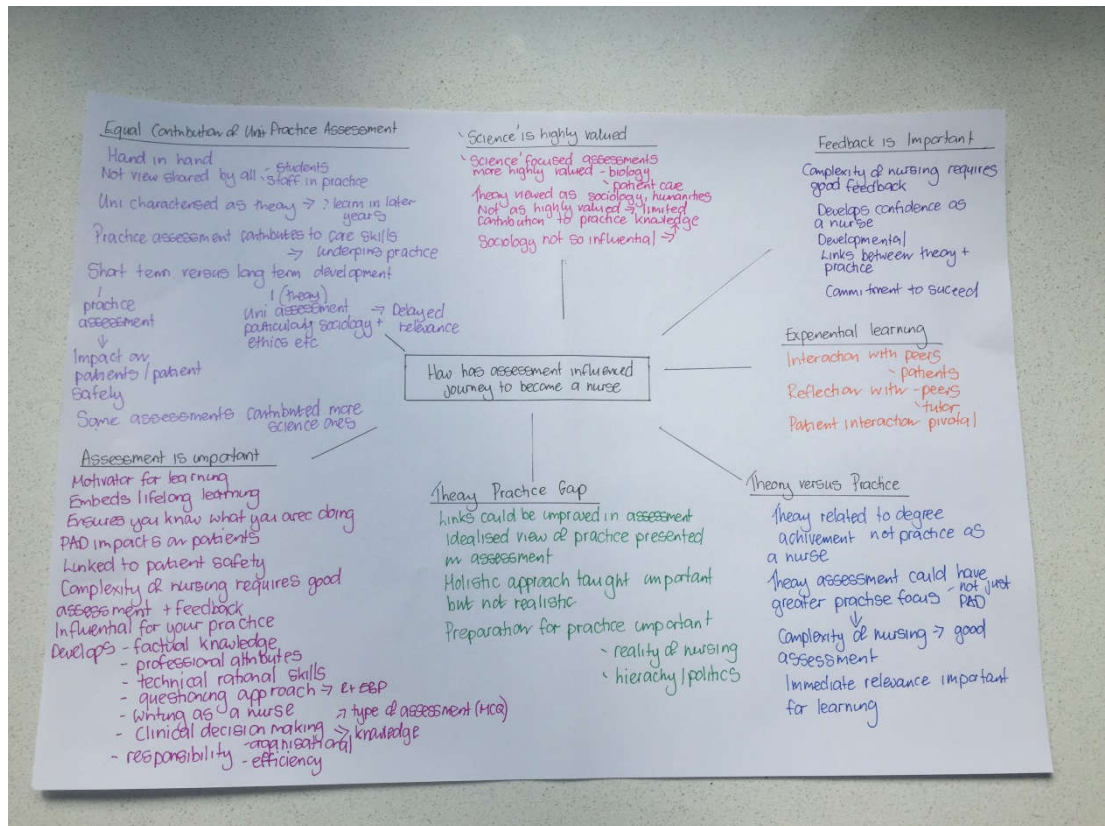 Equal Contribution of Uni Practice Assessment
Hand in hand
Not view shared by all - students
- staff in practice
Uni characterised as theory → ? learn in later
years
Practice assessment contributes to core skills
→ underpins practice
Short term versus long term development
practice
assessment
↓
Impact on
patients/patient
safely
(theory)
Uni assessment → Delayed
particularly sociology + relevance
ethics etc
Some assessments contributed more
science ones
'Science' is highly valued
'Science' focused assessments
more highly valued - biology
patient care
Theory viewed as sociology, humanities
Not as highly valued → limited
contribution to practice knowledge
Sociology not so influential →
Feedback is Important
Complexity of nursing requires
good feedback
Develops confidence as
a nurse
Developmental
Links between theory +
practice
Commitment to suceed
How has assessment influenced
journey to become a nurse
Experiential learning
Interaction with peers
patients
Reflection with - peers
tutor
Patient interaction pivotal
Assessment is important
Motivator for learning
Embeds lifelong learning
Ensures you know what you are doing
PAD impacts on patients
Linked to patient safety
Complexity of nursing requires good
assessment + feedback
Influential for your practice
Develops - factual knowledge
- professional attributes
- technical rational skills
- questioning approach → R + EBP
- writing as a nurse
- clinical decision making → type of assessment (MCQ)
→ knowledge
- responsibility - organisational
- efficiency
Theory Practice Gap
Links could be improved in assessment
Idealised view of practice presented
in assessment
Holistic approach taught important
but not realistic
Preparation for practice important
- reality of nursing
- hierarchy/politics
Theory versus Practice
Theory related to degree
achivement not practice as
a nurse
Theory assessment could have
greater practise focus - not just
PAD
↓
Complexity of nursing → good
assessment
Immediate relevance important
for learning